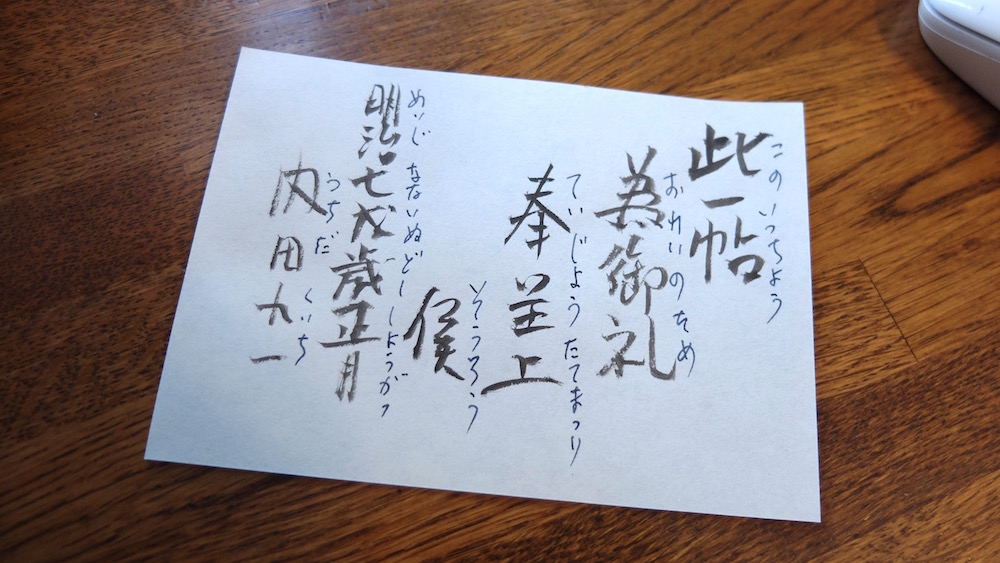 此一帖
このいっちょう
為御礼
おれいのため
奉呈上
ていじょうたてまつり
候
そうろう
明治七戌歳正月
めいじ なないぬどし しょうがつ
内田九一
うちだ くいち